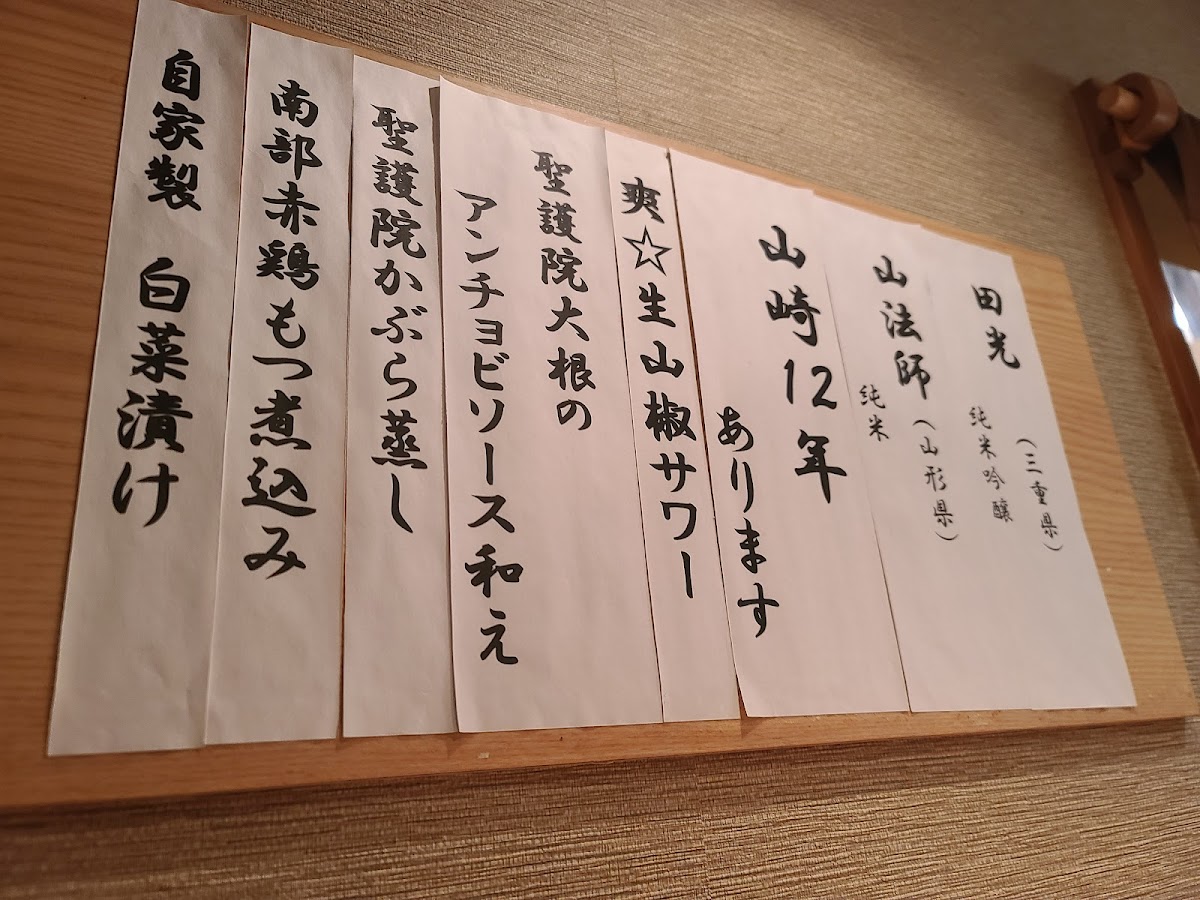 田光
(三重県)
純米吟醸
山法師
(山形県)
純米
山崎12年
あります
爽☆生山椒サワー
聖護院大根の
アンチョビソース和え
聖護院かぶら蒸し
南部赤鶏もつ煮込み
自家製 白菜漬け